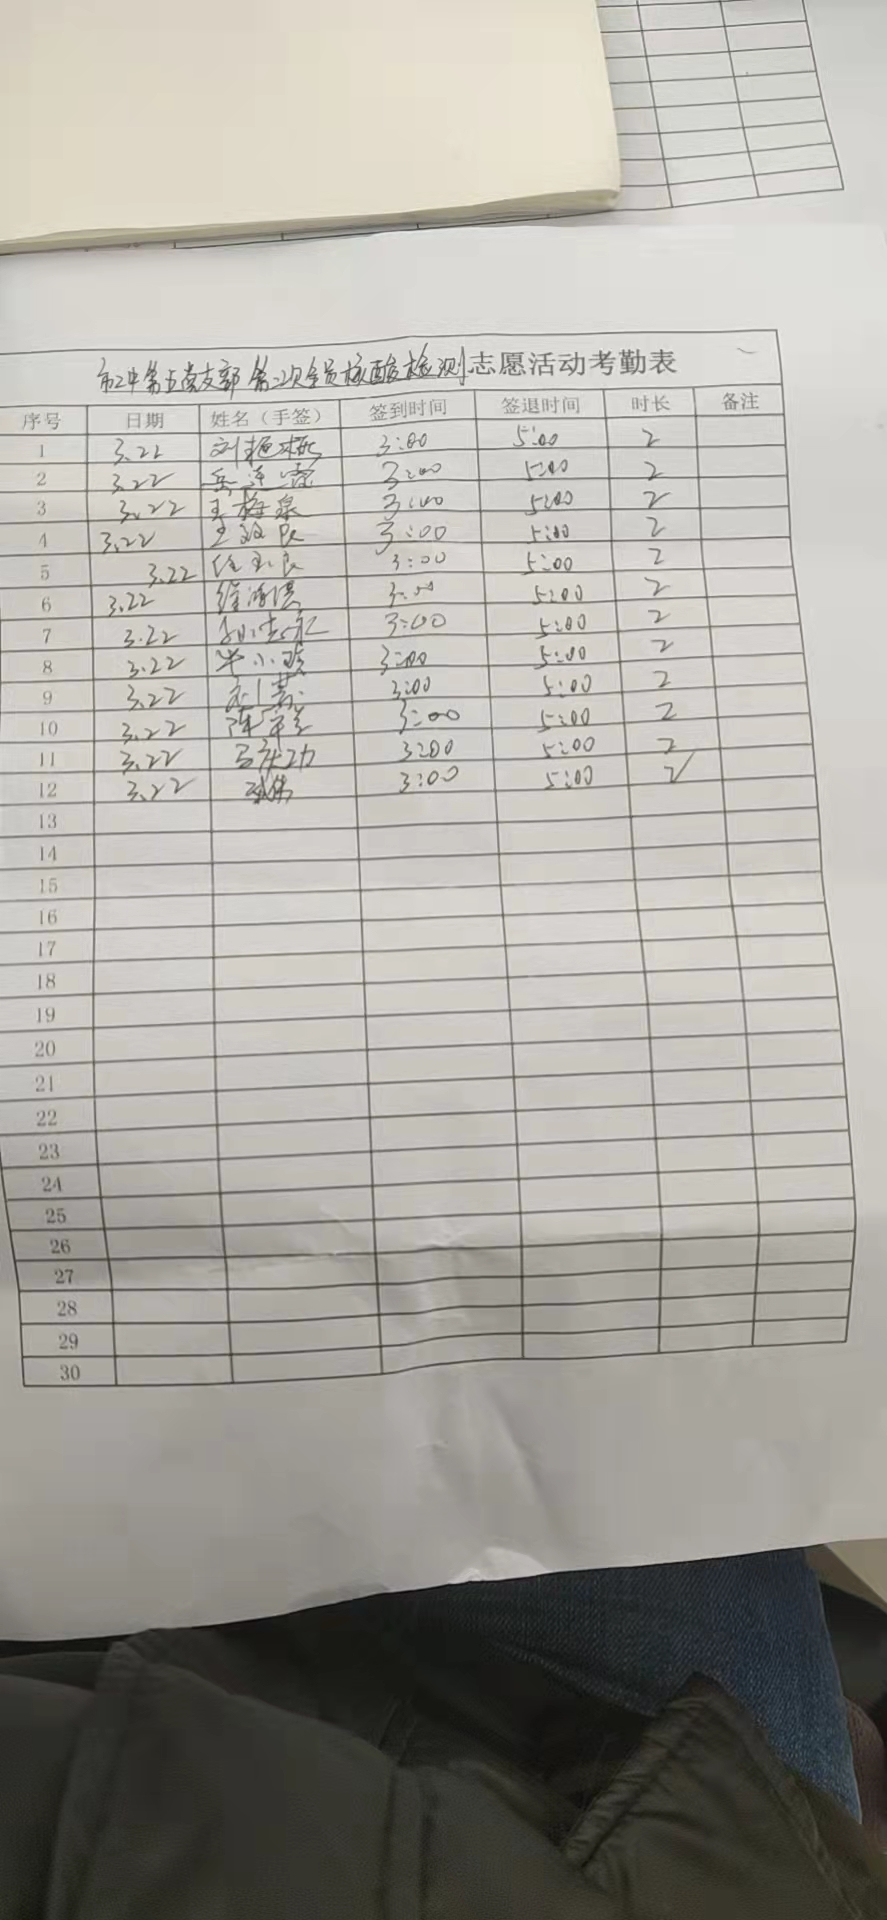 市二中第五党支部第二次全员核酸检测志愿活动考勤表
序号 日期 姓名（手签） 签到时间 签退时间 时长 备注
1 3.22 3:00 5:00 2
2 3.22 3:00 5:00 2
3 3.22 王梅泉 3:00 5:00 2
4 3.22 3:00 5:00 2
5 3.22 3:00 5:00 2
6 3.22 3:00 5:00 2
7 3.22 3:00 5:00 2
8 3.22 3:00 5:00 2
9 3.22 3:00 5:00 2
10 3.22 3:00 5:00 2
11 3.22 3:00 5:00 2
12 3.22 3:00 5:00 2
13
14
15
16
17
18
19
20
21
22
23
24
25
26
27
28
29
30